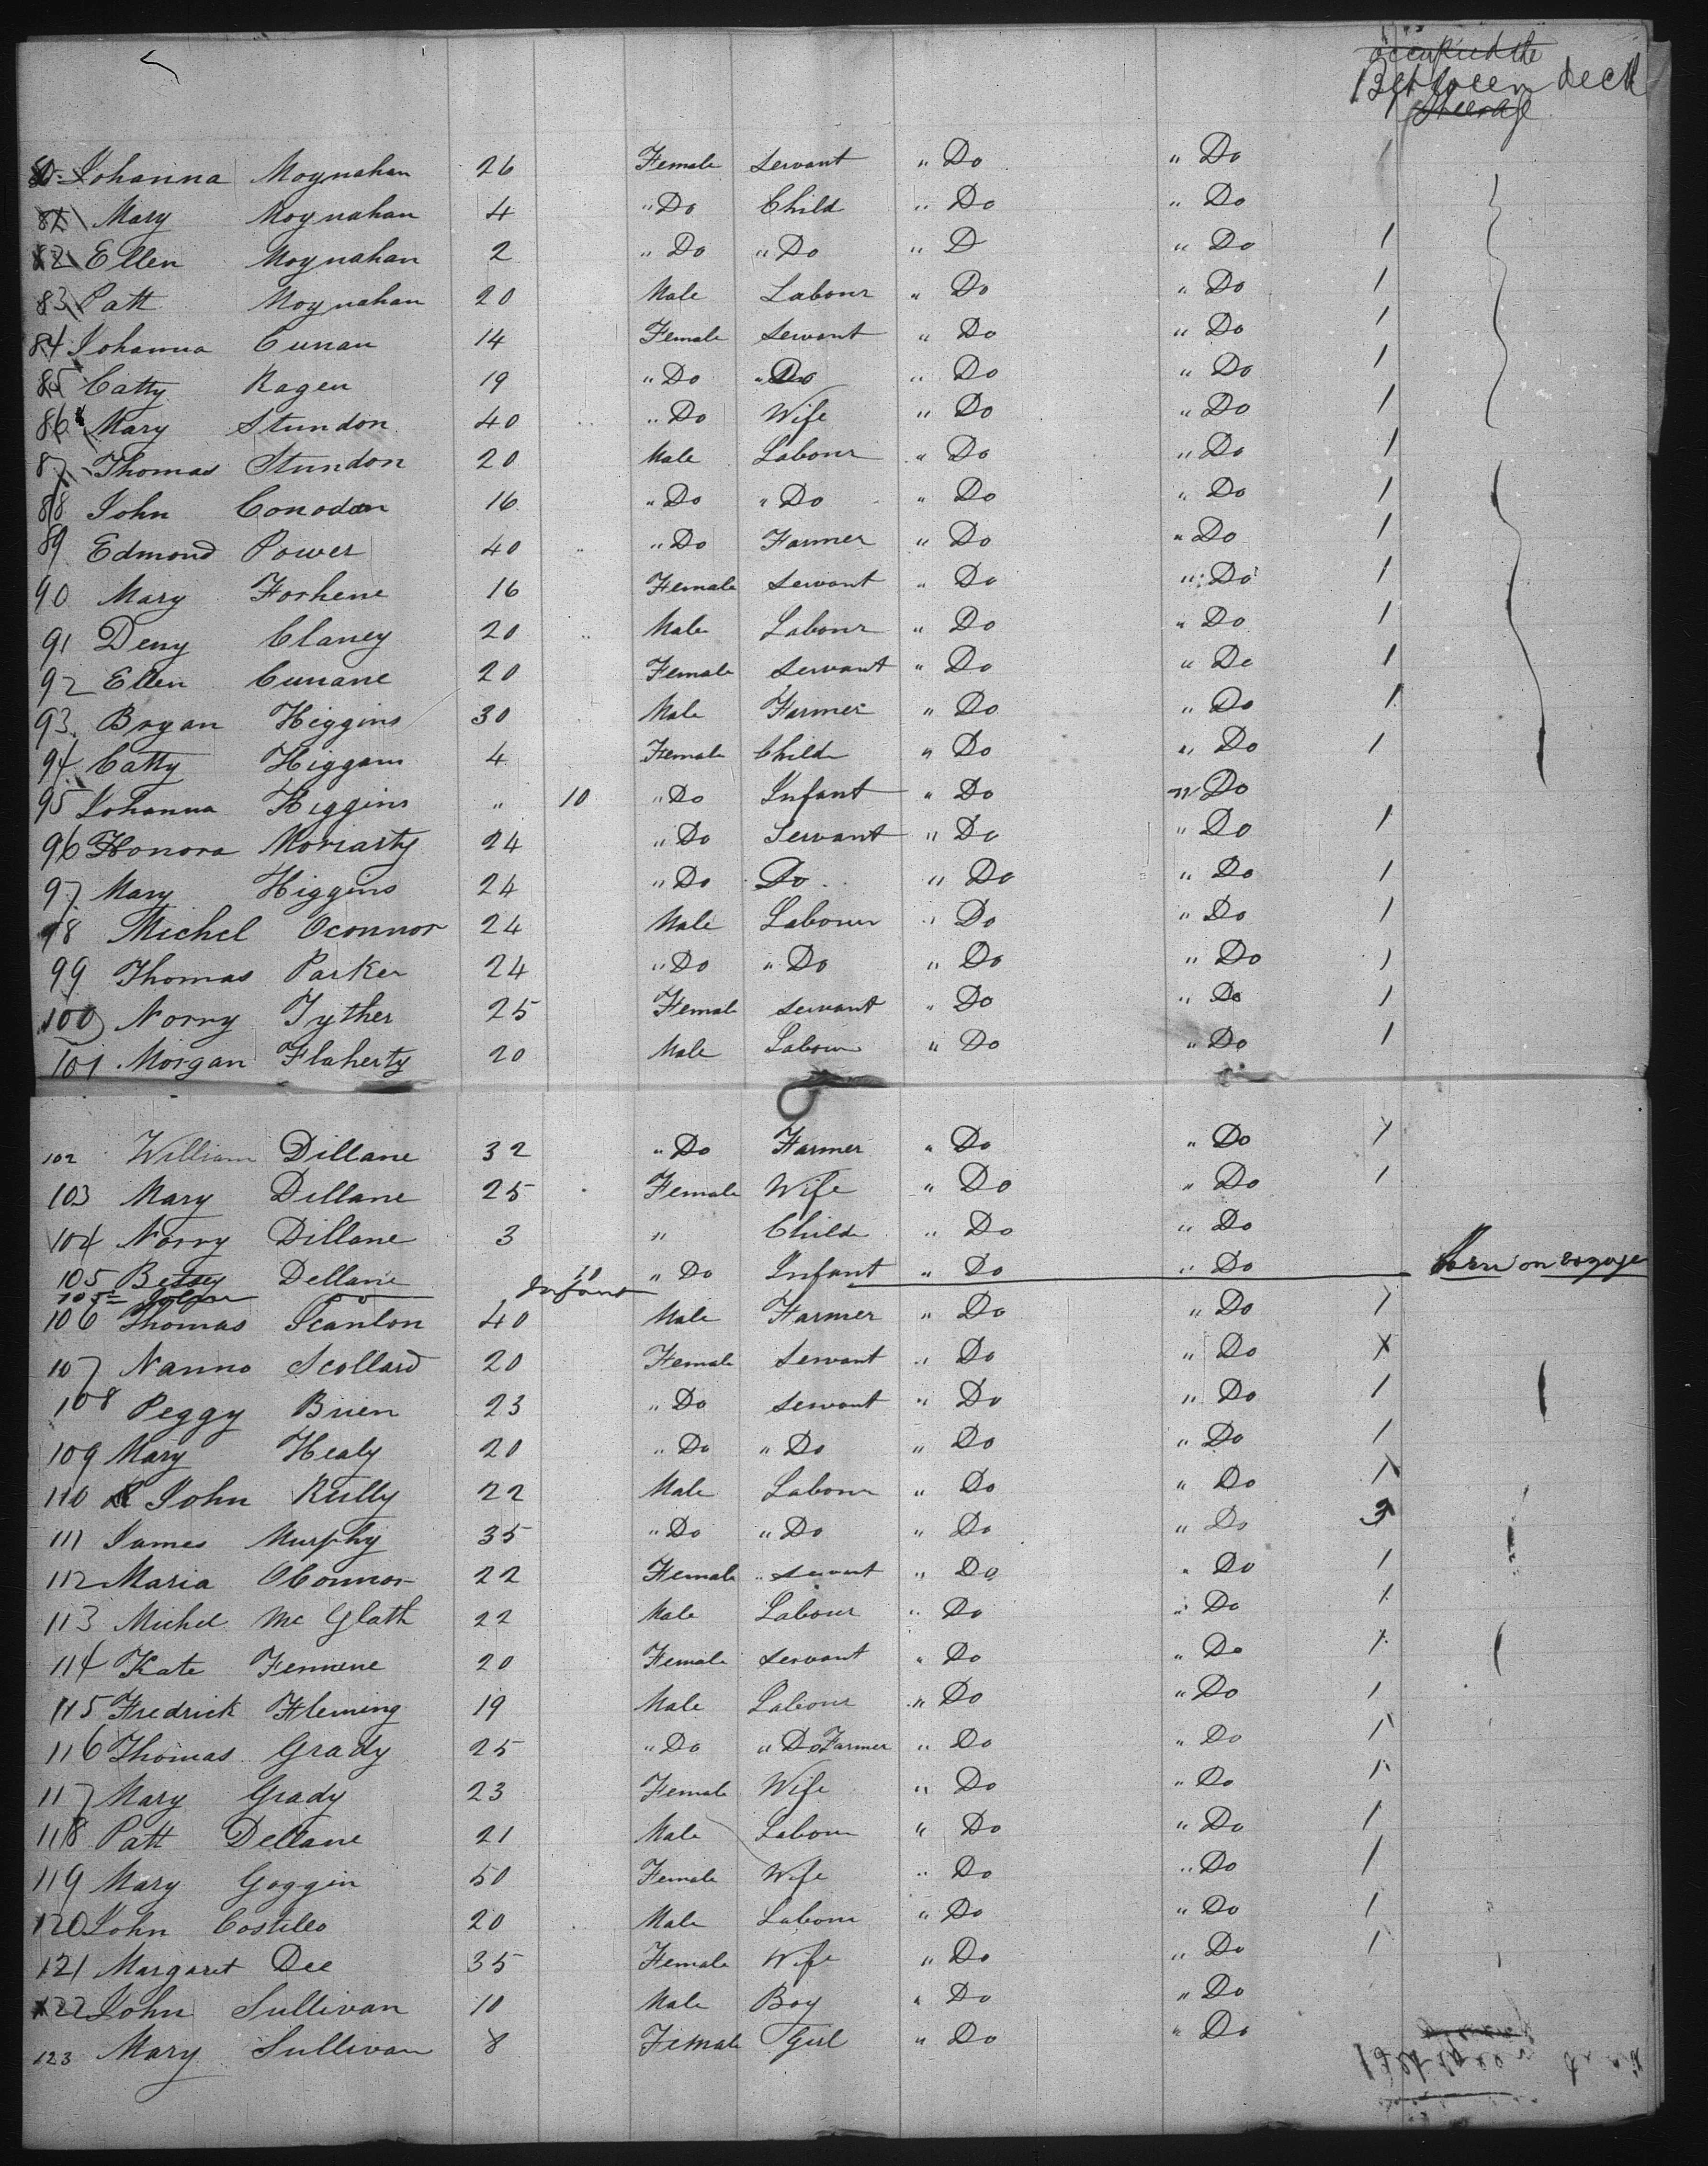 occupied the
Between deck
Steerage
80 Johanna Moynahan 26 Female Servant " Do " Do
81 Mary Moynahan 4 " Do Child " Do " Do
82 Ellen Moynahan 2 " Do " Do " D " Do 1
83 Patt Moynahan 20 Male Labour " Do " Do 1
84 Johanna Cunan 14 Female Servant " Do " Do 1
85 Catty Ragen 19 " Do " Do " Do " Do 1
86 Mary Stundon 40 " Do Wife " Do " Do 1
87 Thomas Stundon 20 Male Labour " Do " Do 1
88 John Conodon 16 " Do " Do " Do " Do 1
89 Edmond Power 40 " Do Farmer " Do " Do 1
90 Mary Forhene 16 Female Servant " Do " Do 1
91 Deny Claney 20 Male Labour " Do " Do 1
92 Ellen Cunane 20 Female Servant " Do " Do 1
93 Bryan Higgins 30 Male Farmer " Do " Do 1
94 Catty Higgans 4 Female Child " Do " Do 1
95 Johanna Higgins " 10 " Do Infant " Do " Do
96 Honora Moriarty 24 " Do Servant " Do " Do 1
97 Mary Higgins 24 " Do Do " Do " Do 1
98 Michel Oconnor 24 Male Labour " Do " Do 1
99 Thomas Parker 24 " Do " Do " Do " Do 1
100 Norry Tyther 25 Female Servant " Do " Do 1
101 Morgan Flaherty 20 Male Labour " Do " Do 1
102 William Dillane 32 " Do Farmer " Do " Do 1
103 Mary Dillane 25 Female Wife " Do " Do 1
104 Norry Dillane 3 " Child " Do " Do
105 Betsey Dellane 10 " Do Infant " Do " Do Born on voyage
105 = Do Infant
106 Thomas Scanlon 40 Male Farmer " Do " Do 1
107 Nanno Scollard 20 Female Servant " Do " Do X
108 Peggy Brien 23 " Do Servant " Do " Do 1
109 Mary Healy 20 " Do " Do " Do " Do 1
110 John Rully 22 Male Labour " Do " Do 1
111 James Murphy 35 " Do " Do " Do " Do 3
112 Maria OConnor 22 Female " Servant " Do " Do 1
113 Michel Mc Glath 22 Male Labour " Do " Do 1
114 Kate Fennene 20 Female Servant " Do " Do 1
115 Fredrick Fleming 19 Male Labour " Do " Do 1
116 Thomas Grady 25 " Do " Do Farmer " Do " Do 1
117 Mary Grady 23 Female Wife " Do " Do 1
118 Patt Dellane 21 Male Labour " Do " Do 1
119 Mary Goggin 50 Female Wife " Do " Do 1
120 John Costello 20 Male Labour " Do " Do 1
121 Margaret Dee 35 Female Wife " Do " Do 1
122 John Sullivan 10 Male Boy " Do " Do
123 Mary Sullivan 8 Female Girl " Do " Do